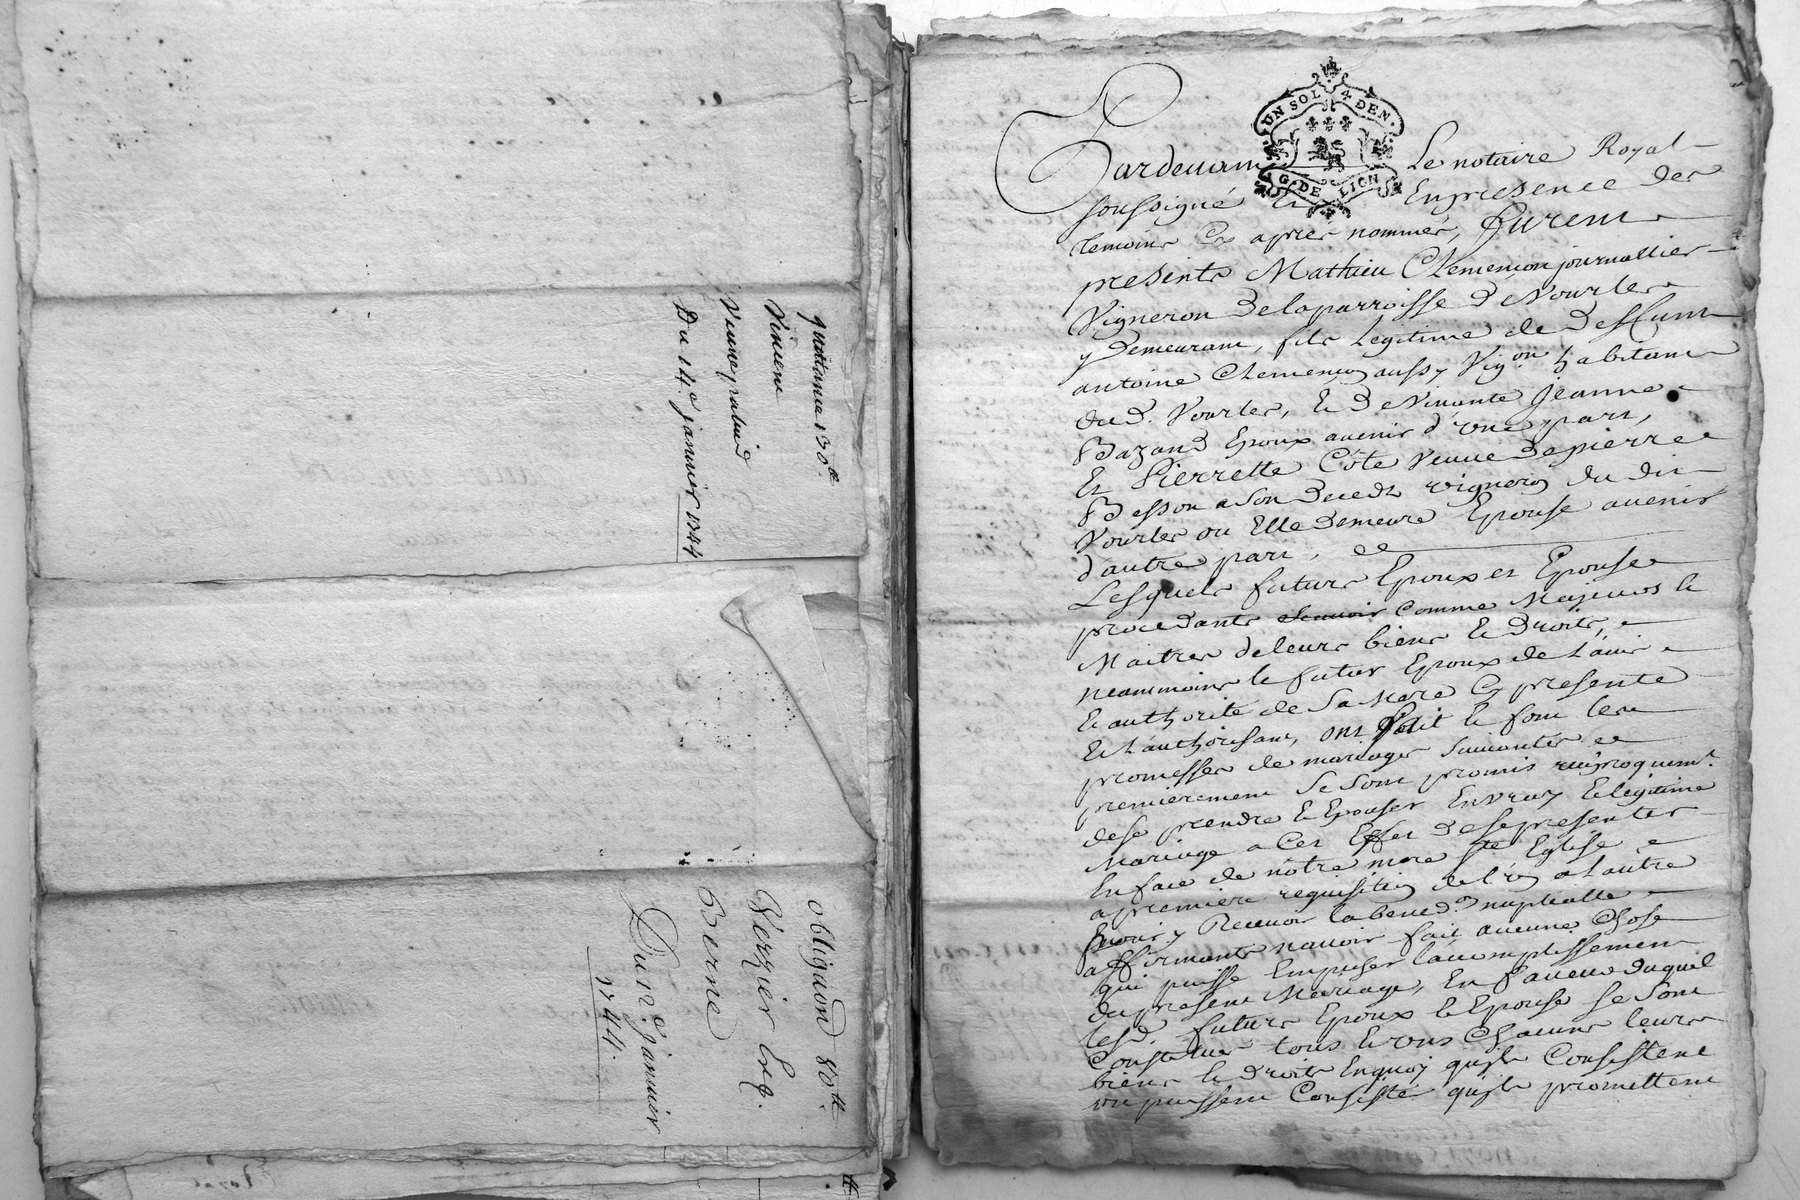 quittance 130ll
Vincent
Veuve paluid
Du 14e janvier 1744
obligaon 80ll
Verzier Erq.
Berne
Du n.e janvier
1744
UN SOL 4 DEN.
G. DE LION
Pardevant Le notaire Royal
soussigné Et En presence des
temoins Cy apres nommés, furent
presents Mathieu Clemençon journallier
Vigneron de la parroisse de Vourles
y demeurant, fils Legitime de deffunt
antoine Clemençon aussy Vig.on habitant
dud. Vourles, et de Vivante Jeanne
Bazand Epoux avenir d'une part,
Et Pierrette Côte veuve de pierre
Besson a son decedt vigneron du dit
Vourles ou Elle demeure Epouse avenir
d'autre part,
Lesquels futurs Epoux et Epouse
procedants scavoir comme Majeurs et
Maitres de leurs biens et droits,
neammoins le futur Epoux de L'avis
et authorité de Sa Mere Cy presente
et L'authorisant, ont fait et font les
promesses de mariage suivantes
premierement se sont promis reciproquemt.
de se prendre et Epouser En vray et legitime
Mariage a Cet Effet de se presenter
En face de nôtre mere ste Eglise
a premiere requisition de l'un a Lautre
pour y Recevoir la bened.on nuptialle
affirmants navoir fait aucune Chose
qui puisse Empecher lacomplissement
du present Mariage, En faveur duquel
lesd. futurs Epoux et Epouse se sont
Constitués tous et uns Chacuns leurs
biens et droits En quoy quils Consistent
ou puissent Consister quils promettent